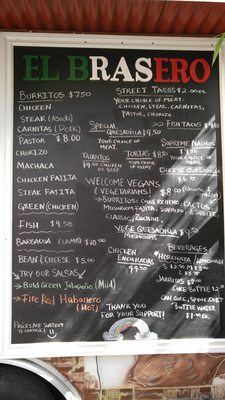 EL BRASERO
BURRITOS $7.50
CHICKEN
STEAK (Asada)
CARNITAS (Pork)
PASTOR $8.00
CHORIZO
MACHACA
CHICKEN FAJITA
STEAK FAJITA
GREEN (CHICKEN)
FISH $9.50
BARBACOA (LAMB) $10.00
BEAN & CHEESE $5.00
TRY OUR SALSAS
Bold Green Jalapeño (Mild)
Fire Red Habanero
(HOT)
PRICES ARE SUBJECT
TO CHANGE!
STREET TACOS $2.00 ea.
YOUR CHOICE OF MEAT:
CHICKEN, STEAK, CARNITAS,
PASTOR, CHORIZO.
SPECIAL
QUESADILLA $9.50
YOUR CHOICE OF
MEAT
FISH TACOS
SUPREME NACHOS
YOUR CHOICE
OF MEAT
TAQUITOS
CHICKEN OR
BEEF
TORTAS $8.50
YOUR CHOICE
OF MEAT
CHEESE QUESADILLA
WELCOME VEGANS
& VEGETARIANS!
BURRITOS: CHILE RELLENO
MUSHROOM FAJITA, CACTUS
CLASSIC, ZUCHINI,
VEGE QUESADILLA
MUSHROOM
CHICKEN
ENCHILADAS
$9.50
BEVERAGES
HORCHATA / LEMONADE
JARRITOS $2.00
COKE BOTTLE
CAN COKE, SPRITE, DIET
BOTTLE WATER
$1.00
THANK YOU
FOR YOUR SUPPORT!